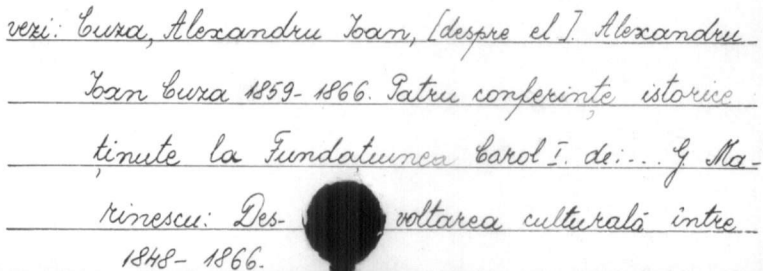 vezi: Cuza, Alexandru Ioan, [despre el]. Alexandru
Ioan Cuza 1859-1866. Patru conferințe istorice
ținute la Fundațiunea Carol I. de:... G Ma-
rinescu: Des- voltarea culturală între
1848-1866.